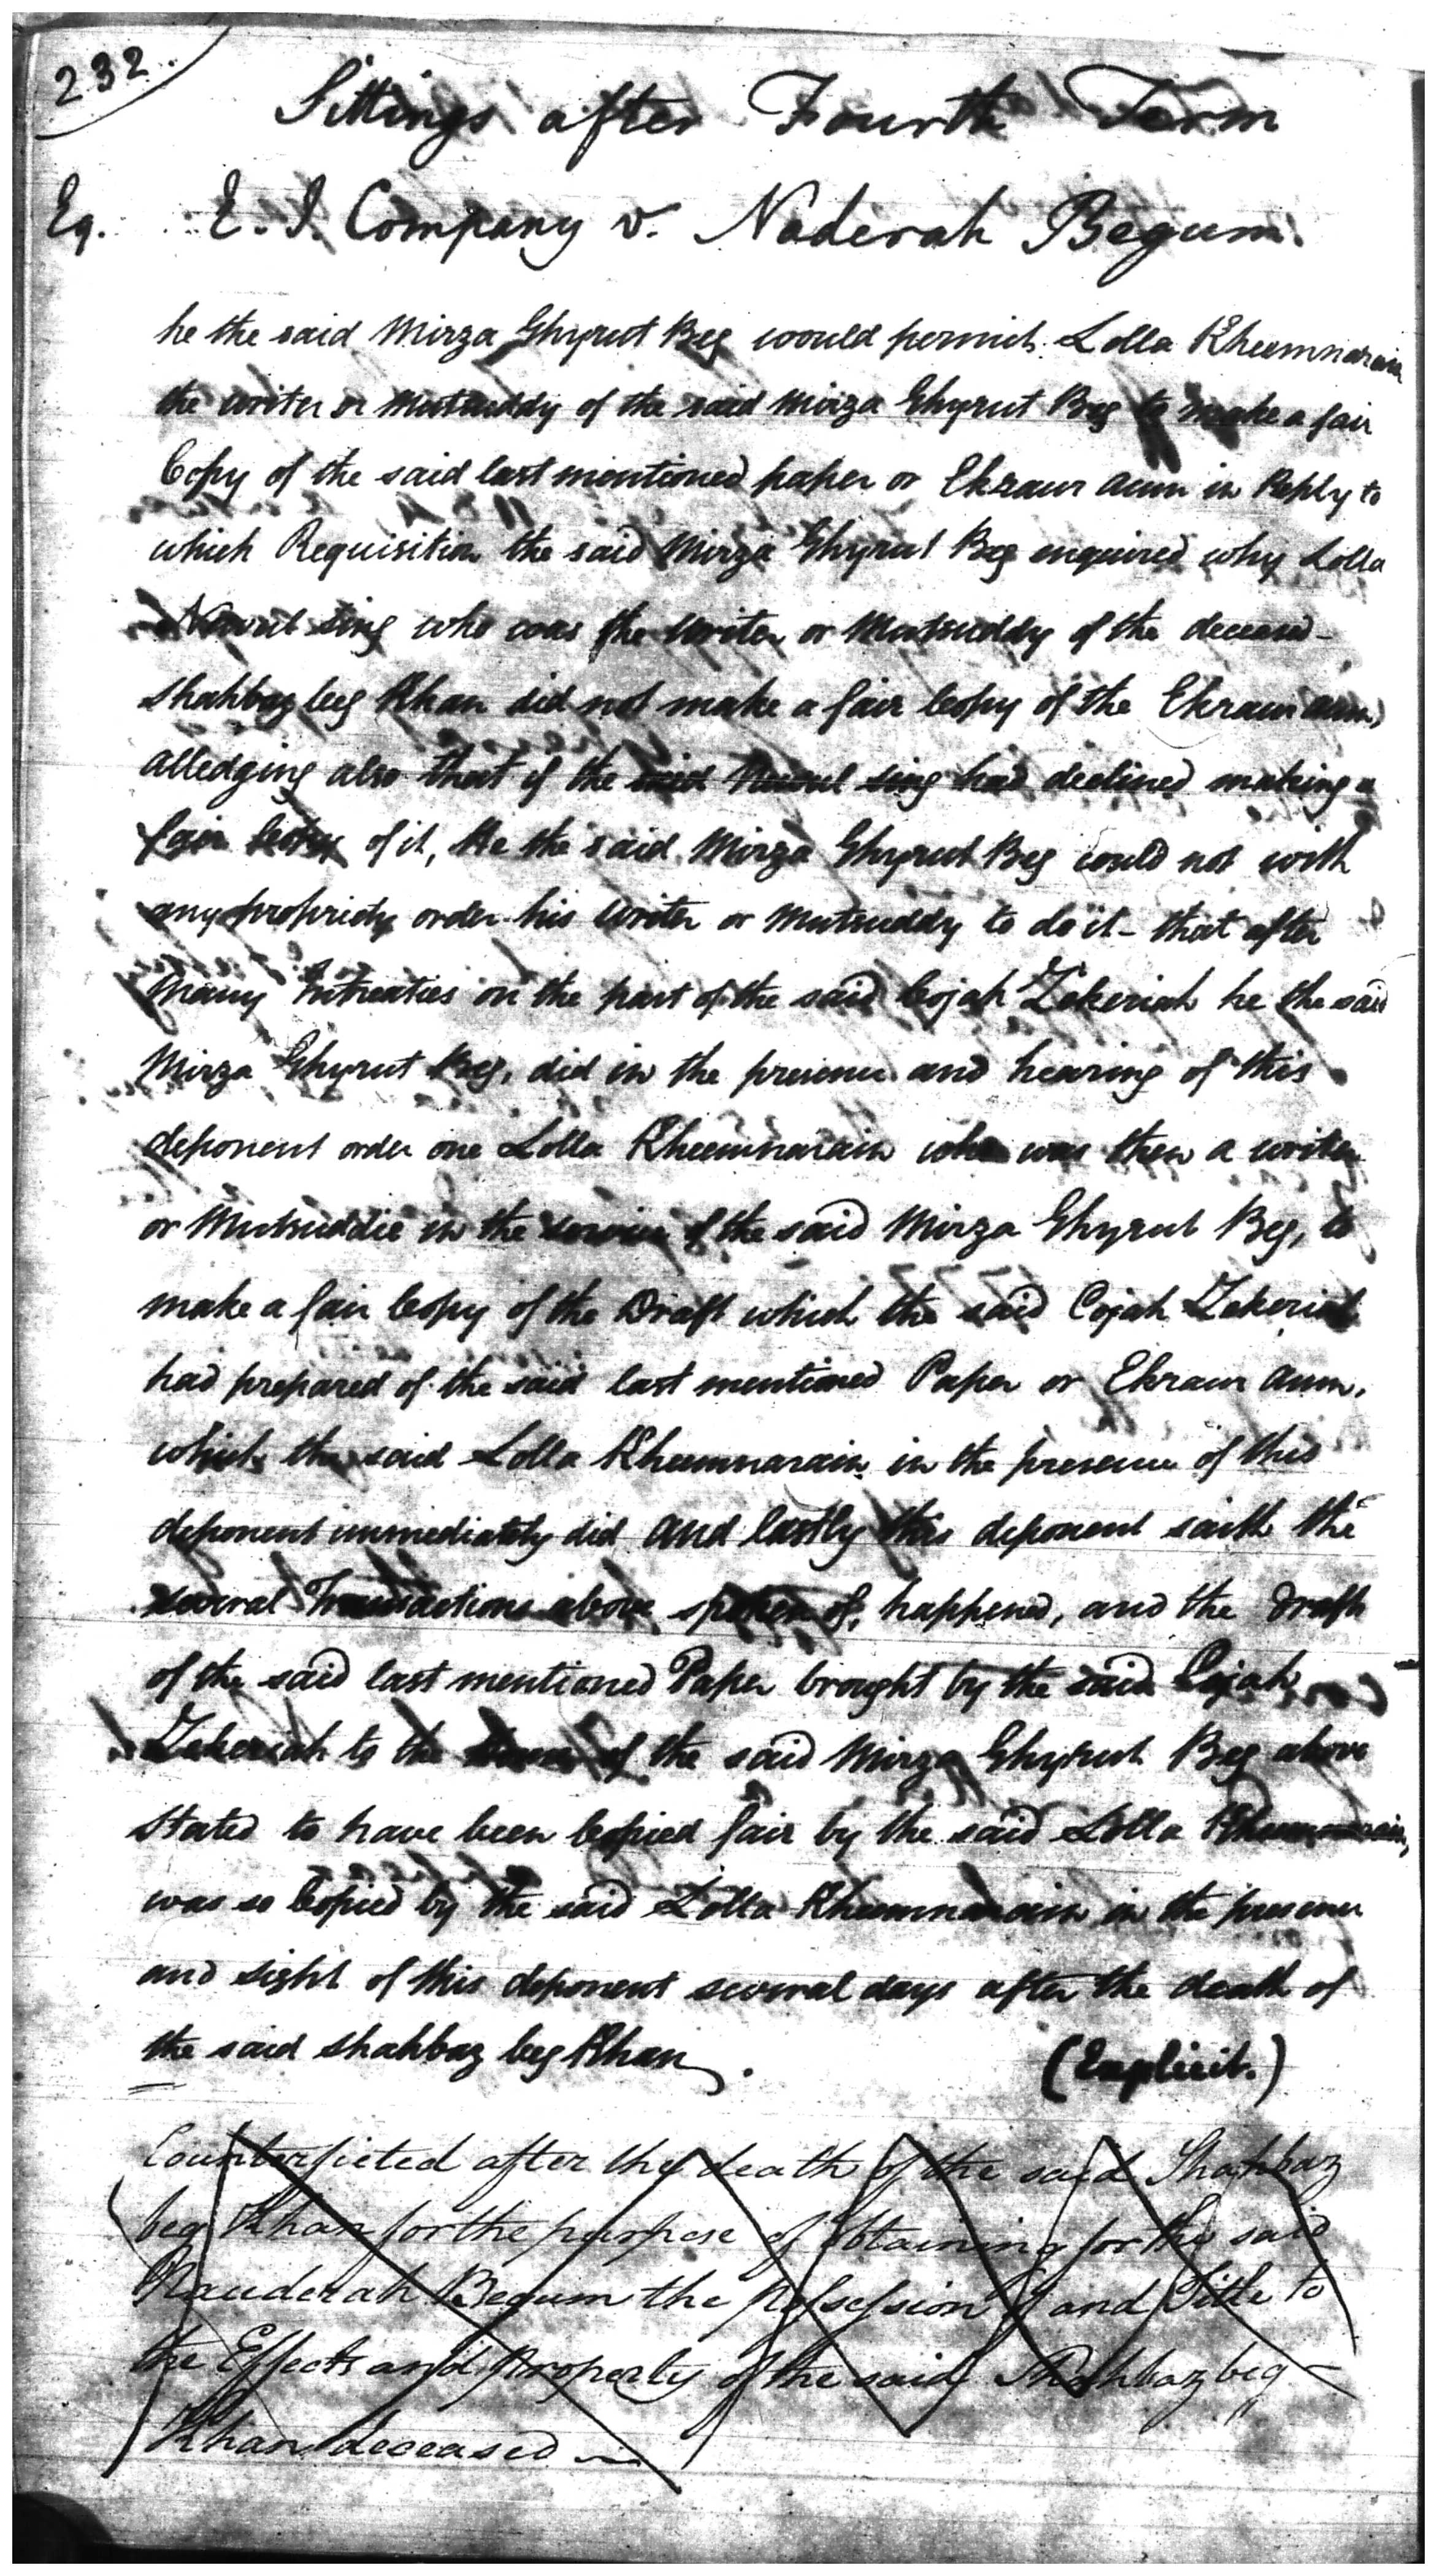 232.
Sittings after Fourth Term
Eq. E. I. Company v. Naderah Begum.
he the said Mirza Ghyrut Beg would permit Lolla Kheemnarain
the writer or Mutsuddy of the said Mirza Ghyrut Beg to make a fair
Copy of the said last mentioned paper or Ekraur aum in Reply to
which Requisition the said Mirza Ghyrut Beg enquired why Lolla
Nowul sing who was the writer or Mutsuddy of the deceased -
Shahbaz beg Khan did not make a fair Copy of the Ekraur aum,
alledging also that if the said Nowul sing had declined making a
fair Copy of it, He the said Mirza Ghyrut Beg could not with
any propriety order his writer or Mutsuddy to do it - that after
Many Intreaties on the part of the said Cojah Zekeriah he the said
Mirza Ghyrut Beg, did in the presence and hearing of this
deponent order one Lolla Kheemnarain who was then a writer
or Mutsuddie in the service of the said Mirza Ghyrut Beg, to
make a fair Copy of the Draft which the said Cojah Zekeriah
had prepared of the said last mentioned Paper or Ekraur aum,
which the said Lolla Kheemnarain in the presence of this
deponent immediately did and lastly this deponent saith the
several Transactions above spoken of, happened, and the Draft
of the said last mentioned Paper brought by the said Cojah
Zekeriah to the House of the said Mirza Ghyrut Beg above
stated to have been Copied fair by the said Lolla Kheemnarain,
was so Copied by the said Lolla Kheemnarain in the presence
and sight of this deponent several days after the death of
the said Shahbaz beg Khan.
(Explicit.)
Counterfieted after the death of the said Shahbaz
beg Khan for the purpose of Obtaining for the said
Nauderah Begum the Possession of and Title to
the Effects and Property of the said Shahbaz beg -
Khan deceased -